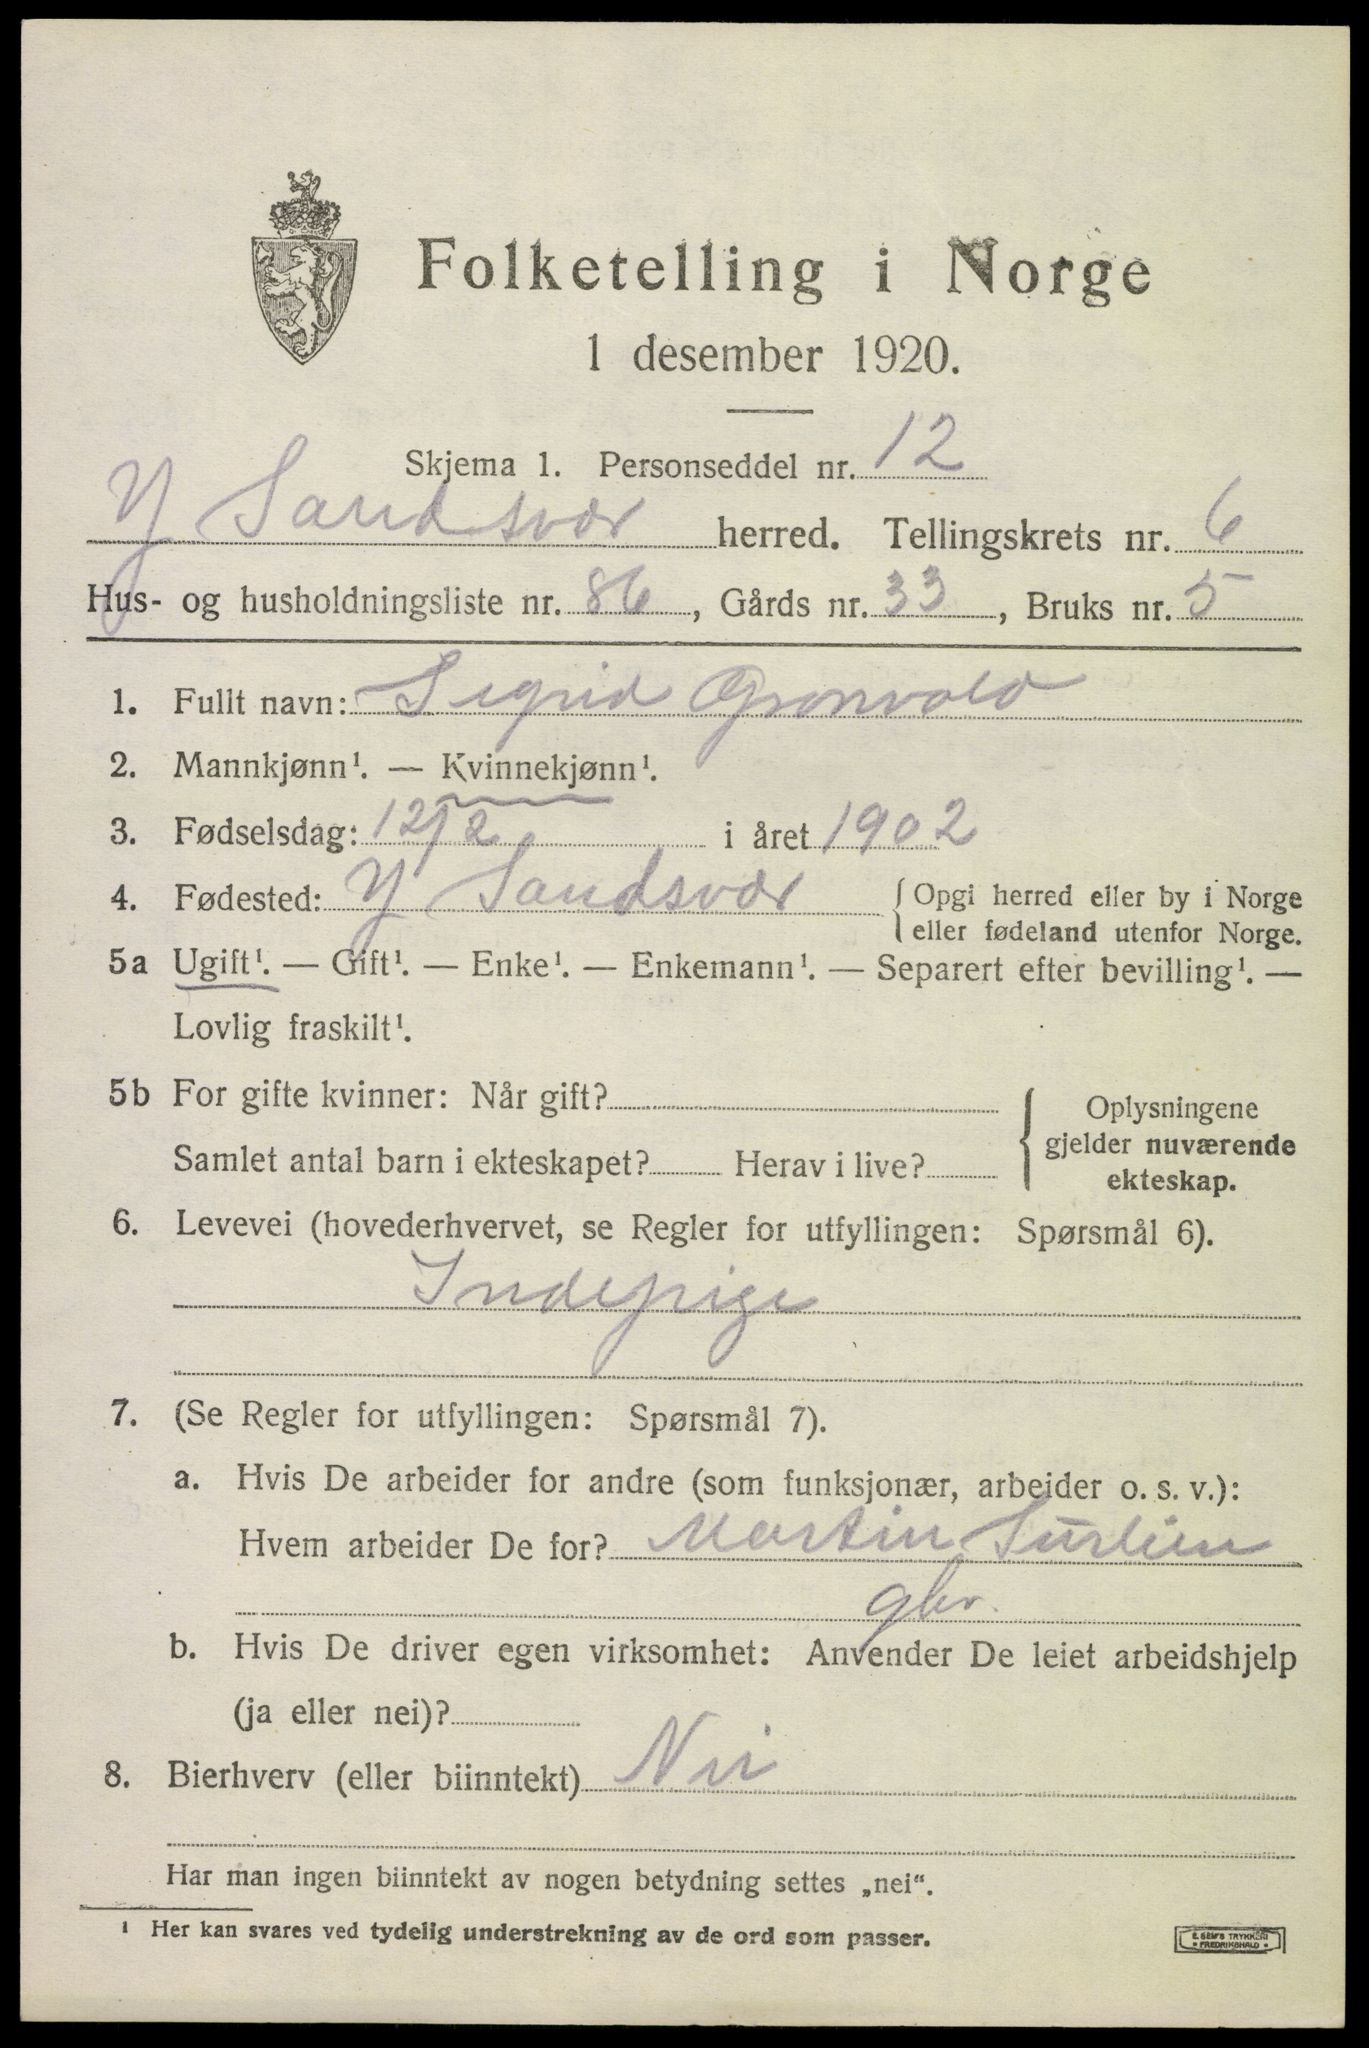 Folketelling i Norge
1 desember 1920.
Skjema 1. Personseddel nr. 12
Y Sandsvær herred. Tellingskrets nr. 6
Hus- og husholdningsliste nr. 86, Gårds nr. 33, Bruks nr. 5
1. Fullt navn: Sigrid Grønvold
2. Mannkjønn¹. — Kvinnekjønn¹.
3. Fødselsdag: 12/2 i året 1902
4. Fødested: Y Sandsvær { Opgi herred eller by i Norge
eller fødeland utenfor Norge.
5a Ugift¹. — Gift¹. — Enke¹. — Enkemann¹. — Separert efter bevilling¹. —
Lovlig fraskilt¹.
5b For gifte kvinner: Når gift?
Samlet antal barn i ekteskapet? Herav i live?
{ Oplysningene
gjelder nuværende
ekteskap.
6. Levevei (hovederhvervet, se Regler for utfyllingen: Spørsmål 6).
Indepige
7. (Se Regler for utfyllingen: Spørsmål 7).
a. Hvis De arbeider for andre (som funksjonær, arbeider o. s. v.):
Hvem arbeider De for? Martin Surlien
gbr.
b. Hvis De driver egen virksomhet: Anvender De leiet arbeidshjelp
(ja eller nei)?
8. Bierhverv (eller biinntekt) Nei
Har man ingen biinntekt av nogen betydning settes „nei“.
¹ Her kan svares ved tydelig understrekning av de ord som passer.
E. SEM'S TRYKKERI
• FREDRIKSHALD •